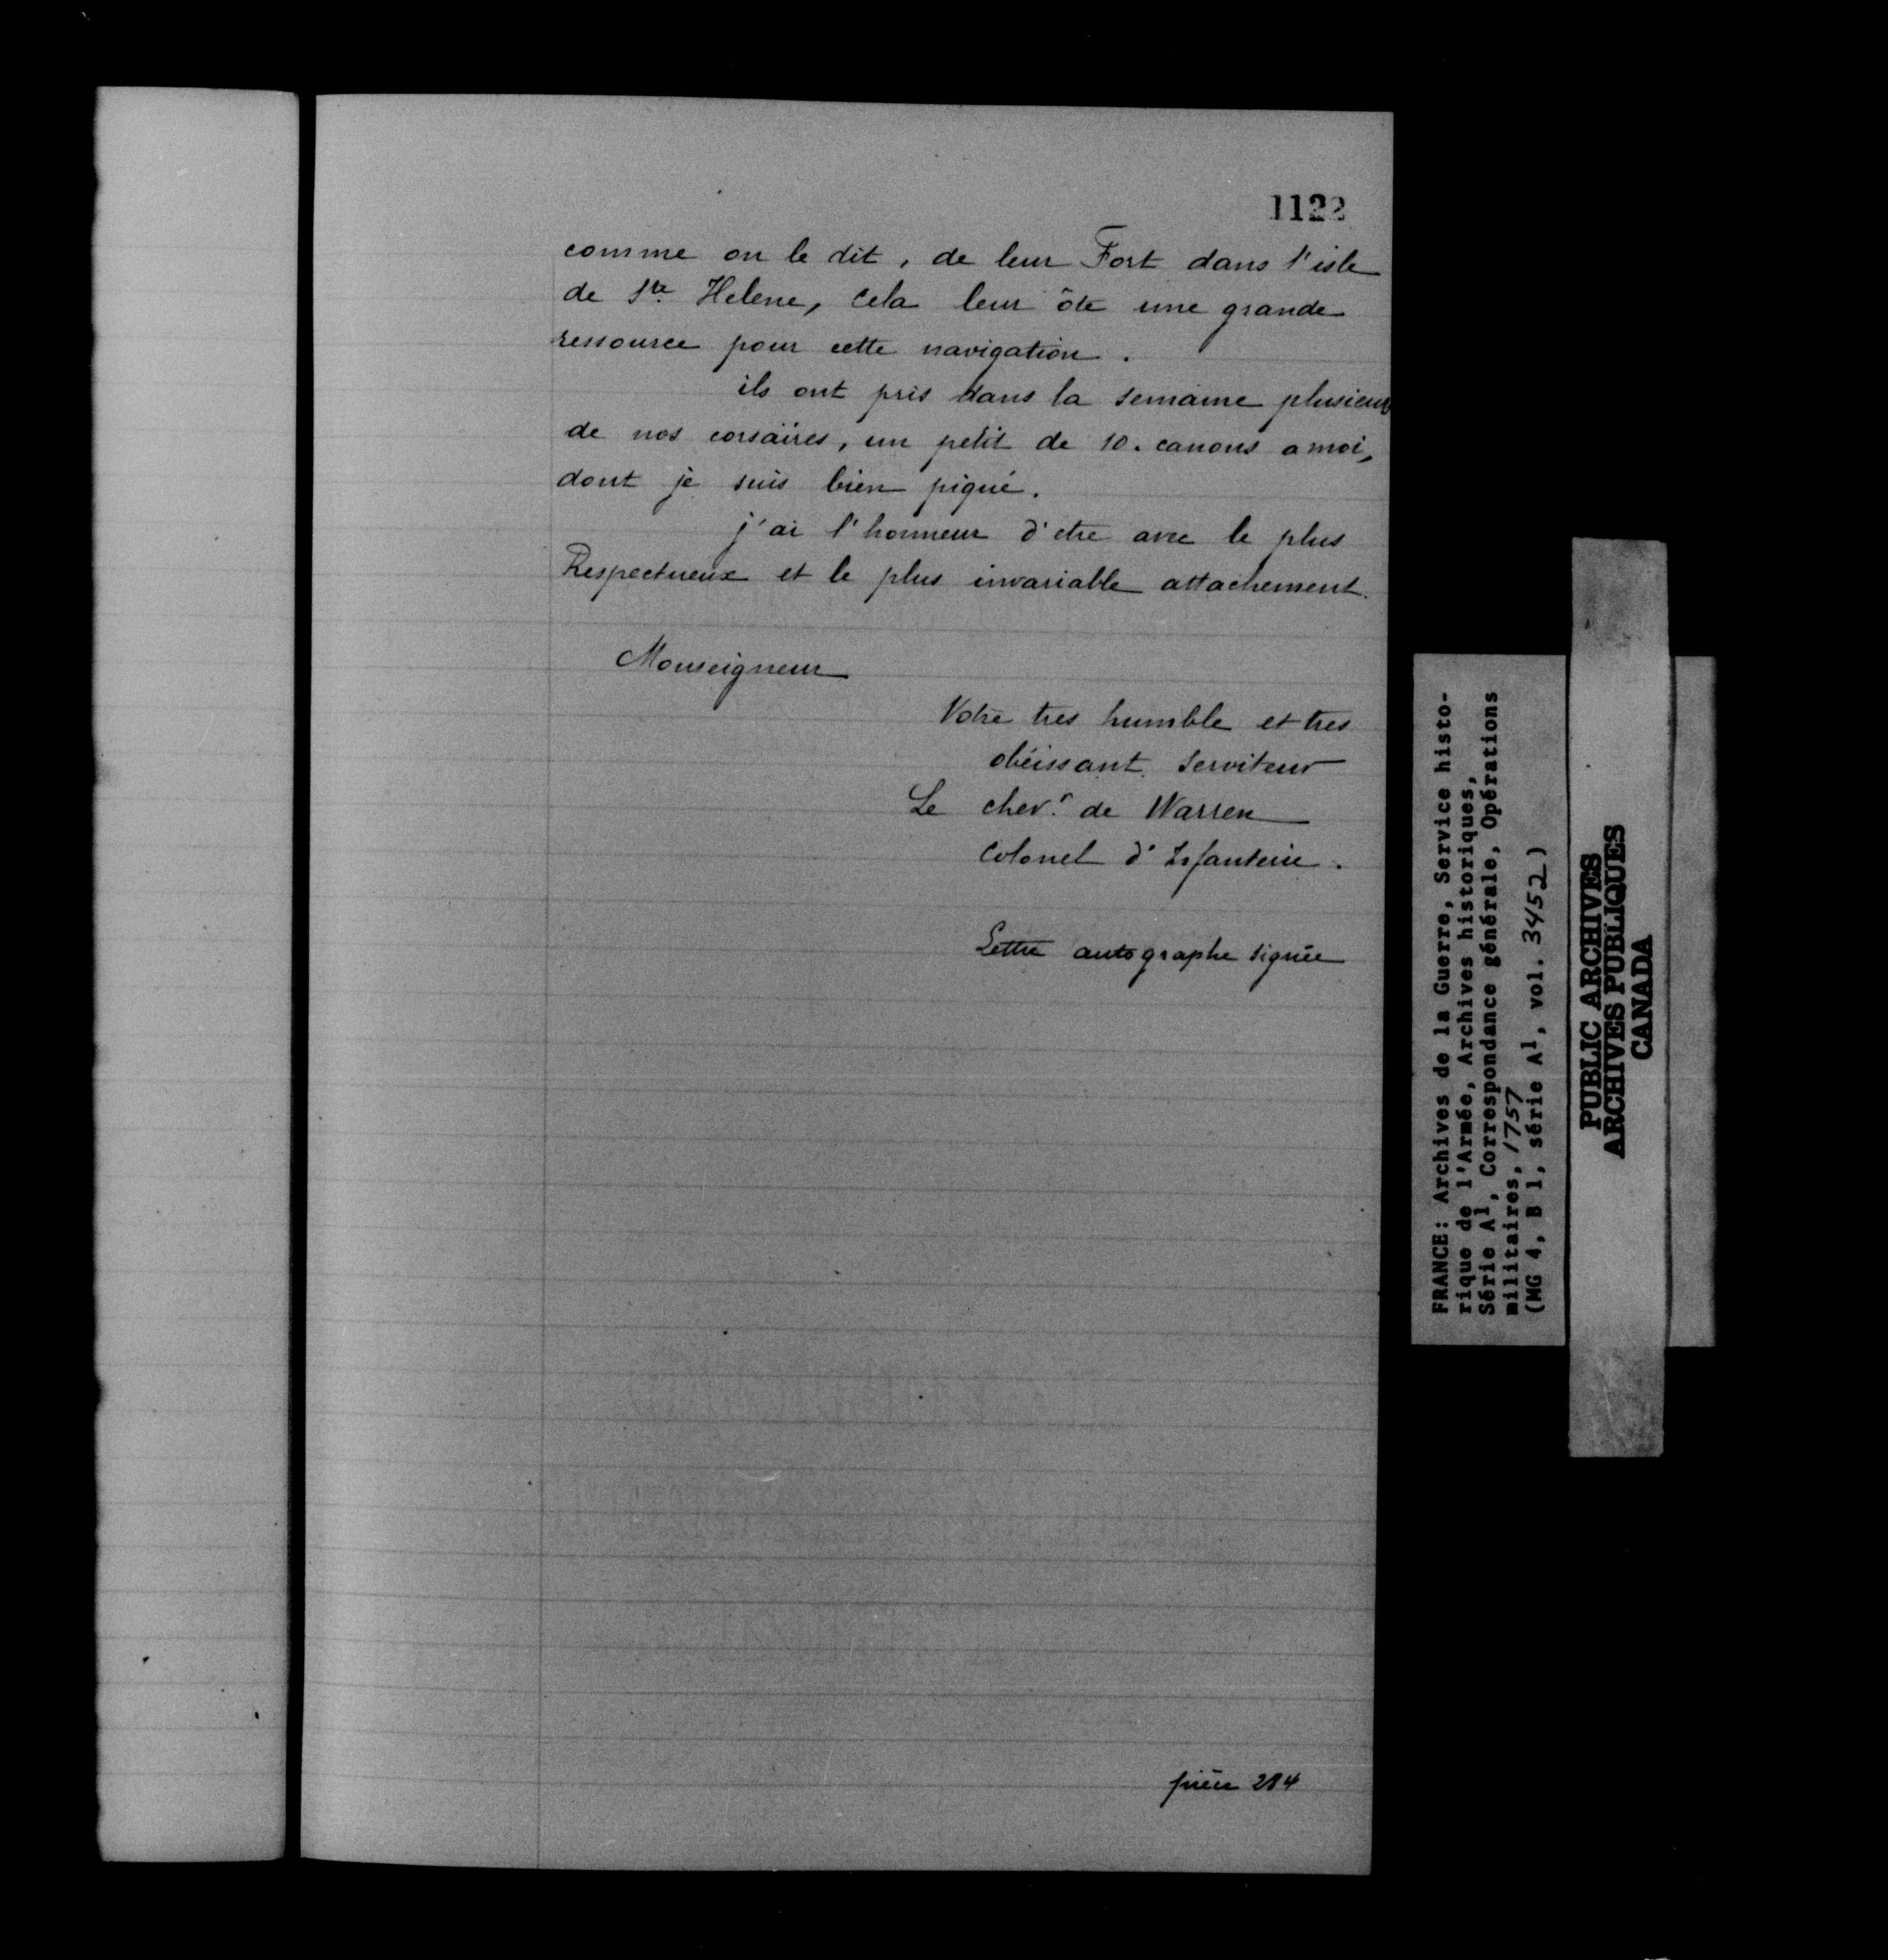 1122
comme on le dit, de leur Fort dans l'isle
de Ste. Helene, Cela leur ôte une grande
ressource pour cette navigation.
ils ont pris dans la semaine plusieurs
de nos corsaires, un petit de 10. canons a moi,
dont je suis bien piqué.
j'ai l'honneur d'etre avec le plus
Respectueux et le plus invariable attachement.
Monseigneur
Votre tres humble et tres
obéissant Serviteur
Le chevr. de Warren
Colonel d'Infanterie.
Lettre autographe signée
pièce 284
FRANCE: Archives de la Guerre, Service histo-
rique de l'Armée, Archives historiques,
Série A1, Correspondance générale, Opérations
militaires, 1757
(MG 4, B 1, série A1, vol. 3452)
PUBLIC ARCHIVES
ARCHIVES PUBLIQUES
CANADA